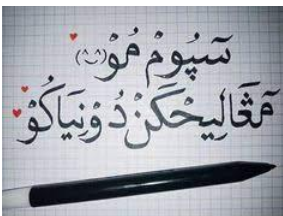 سَپُوْمْ مُوْ (^-^)
مَڠَالِيحْكَنْ دُوْنِيَاكُوْ